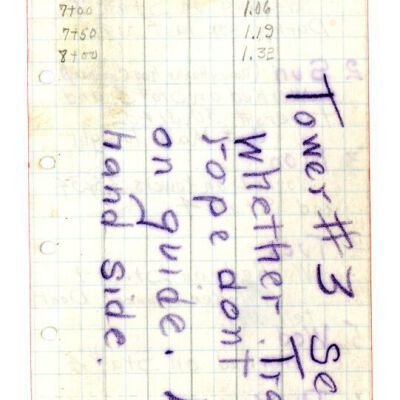 7+00 1.06
7+50 1.19
8+00 1.32
Tower #3 Se
Whether Tra
rope dont
on guide.
hand side.